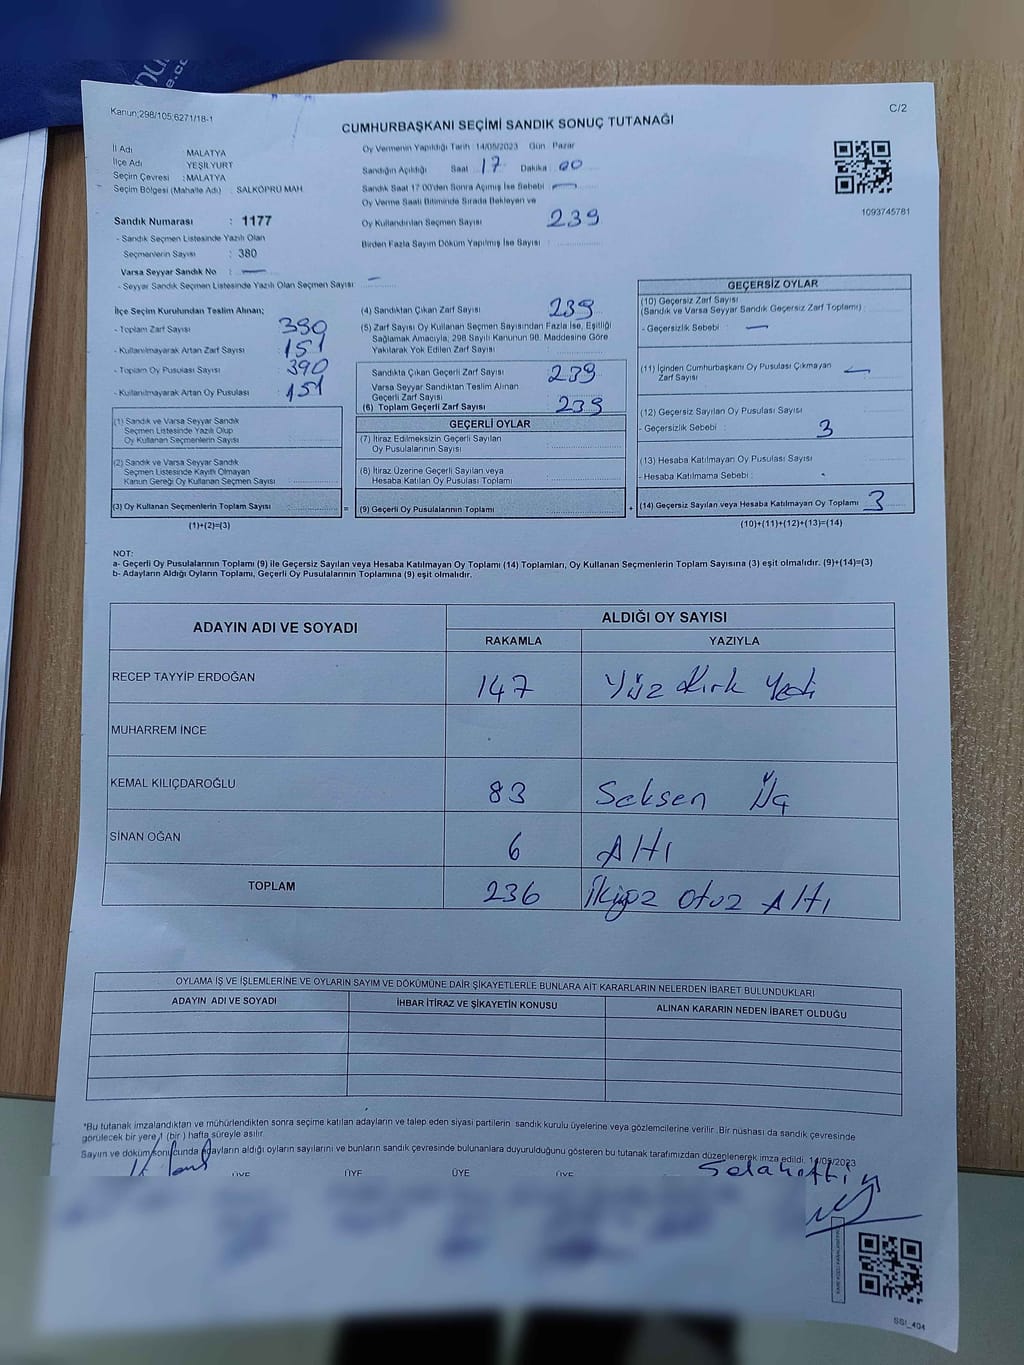 Kanun;298/105;6271/18-1
C/2
CUMHURBAŞKANI SEÇİMİ SANDIK SONUÇ TUTANAĞI
İl Adı MALATYA
İlçe Adı YEŞİLYURT
Seçim Çevresi : MALATYA
Seçim Bölgesi (Mahalle Adı) : SALKÖPRÜ MAH.
Sandık Numarası : 1177
- Sandık Seçmen Listesinde Yazılı Olan
Seçmenlerin Sayısı : 380
Varsa Seyyar Sandık No : —
- Seyyar Sandık Seçmen Listesinde Yazılı Olan Seçmen Sayısı : —
Oy Vermenin Yapıldığı Tarih : 14/05/2023 Gün : Pazar
Sandığın Açıldığı Saat : 17 Dakika : 00
Sandık Saat 17.00'den Sonra Açılmış İse Sebebi : —
Oy Verme Saati Bitiminde Sırada Bekleyen ve
Oy Kullandırılan Seçmen Sayısı 239
Birden Fazla Sayım Döküm Yapılmış İse Sayısı :
1093745781
İlçe Seçim Kurulundan Teslim Alınan;
- Toplam Zarf Sayısı 390
- Kullanılmayarak Artan Zarf Sayısı 151
- Toplam Oy Pusulası Sayısı 390
- Kullanılmayarak Artan Oy Pusulası 151
(1) Sandık ve Varsa Seyyar Sandık
Seçmen Listesinde Yazılı Olup
Oy Kullanan Seçmenlerin Sayısı :
(2) Sandık ve Varsa Seyyar Sandık
Seçmen Listesinde Kayıtlı Olmayan
Kanun Gereği Oy Kullanan Seçmen Sayısı :
(3) Oy Kullanan Seçmenlerin Toplam Sayısı : =
(1)+(2)=(3)
(4) Sandıktan Çıkan Zarf Sayısı : 239
(5) Zarf Sayısı Oy Kullanan Seçmen Sayısından Fazla İse, Eşitliği
Sağlamak Amacıyla; 298 Sayılı Kanunun 98. Maddesine Göre
Yakılarak Yok Edilen Zarf Sayısı :
Sandıkta Çıkan Geçerli Zarf Sayısı : 239
Varsa Seyyar Sandıktan Teslim Alınan
Geçerli Zarf Sayısı :
(6) Toplam Geçerli Zarf Sayısı : 239
GEÇERLİ OYLAR
(7) İtiraz Edilmeksizin Geçerli Sayılan
Oy Pusulalarının Sayısı :
(8) İtiraz Üzerine Geçerli Sayılan veya
Hesaba Katılan Oy Pusulası Toplamı :
(9) Geçerli Oy Pusulalarının Toplamı : +
GEÇERSİZ OYLAR
(10) Geçersiz Zarf Sayısı
(Sandık ve Varsa Seyyar Sandık Geçersiz Zarf Toplamı) :
- Geçersizlik Sebebi : —
(11) İçinden Cumhurbaşkanı Oy Pusulası Çıkmayan
Zarf Sayısı : —
(12) Geçersiz Sayılan Oy Pusulası Sayısı :
- Geçersizlik Sebebi : 3
(13) Hesaba Katılmayan Oy Pusulası Sayısı :
- Hesaba Katılmama Sebebi :
(14) Geçersiz Sayılan veya Hesaba Katılmayan Oy Toplamı : 3
(10)+(11)+(12)+(13)=(14)
NOT:
a- Geçerli Oy Pusulalarının Toplamı (9) ile Geçersiz Sayılan veya Hesaba Katılmayan Oy Toplamı (14) Toplamları, Oy Kullanan Seçmenlerin Toplam Sayısına (3) eşit olmalıdır. (9)+(14)=(3)
b- Adayların Aldığı Oyların Toplamı, Geçerli Oy Pusulalarının Toplamına (9) eşit olmalıdır.
ADAYIN ADI VE SOYADI ALDIĞI OY SAYISI
RAKAMLA YAZIYLA
RECEP TAYYİP ERDOĞAN 147 Yüz Kırk Yedi
MUHARREM İNCE
KEMAL KILIÇDAROĞLU 83 Seksen Üç
SİNAN OĞAN 6 Altı
TOPLAM 236 İkiyüz otuz Altı
OYLAMA İŞ VE İŞLEMLERİNE VE OYLARIN SAYIM VE DÖKÜMÜNE DAİR ŞİKAYETLERLE BUNLARA AİT KARARLARIN NELERDEN İBARET BULUNDUKLARI
ADAYIN ADI VE SOYADI İHBAR İTİRAZ VE ŞİKAYETİN KONUSU ALINAN KARARIN NEDEN İBARET OLDUĞU
*Bu tutanak imzalandıktan ve mühürlendikten sonra seçime katılan adayların ve talep eden siyasi partilerin sandık kurulu üyelerine veya gözlemcilerine verilir. Bir nüshası da sandık çevresinde
görülecek bir yere 1 (bir) hafta süreyle asılır.
Sayım ve döküm sonucunda adayların aldığı oyların sayılarını ve bunların sandık çevresinde bulunanlara duyurulduğunu gösteren bu tutanak tarafımızdan düzenlenerek imza edildi. 14/05/2023
ÜYE ÜYE ÜYE ÜYE
Selahattin
SSİ_404